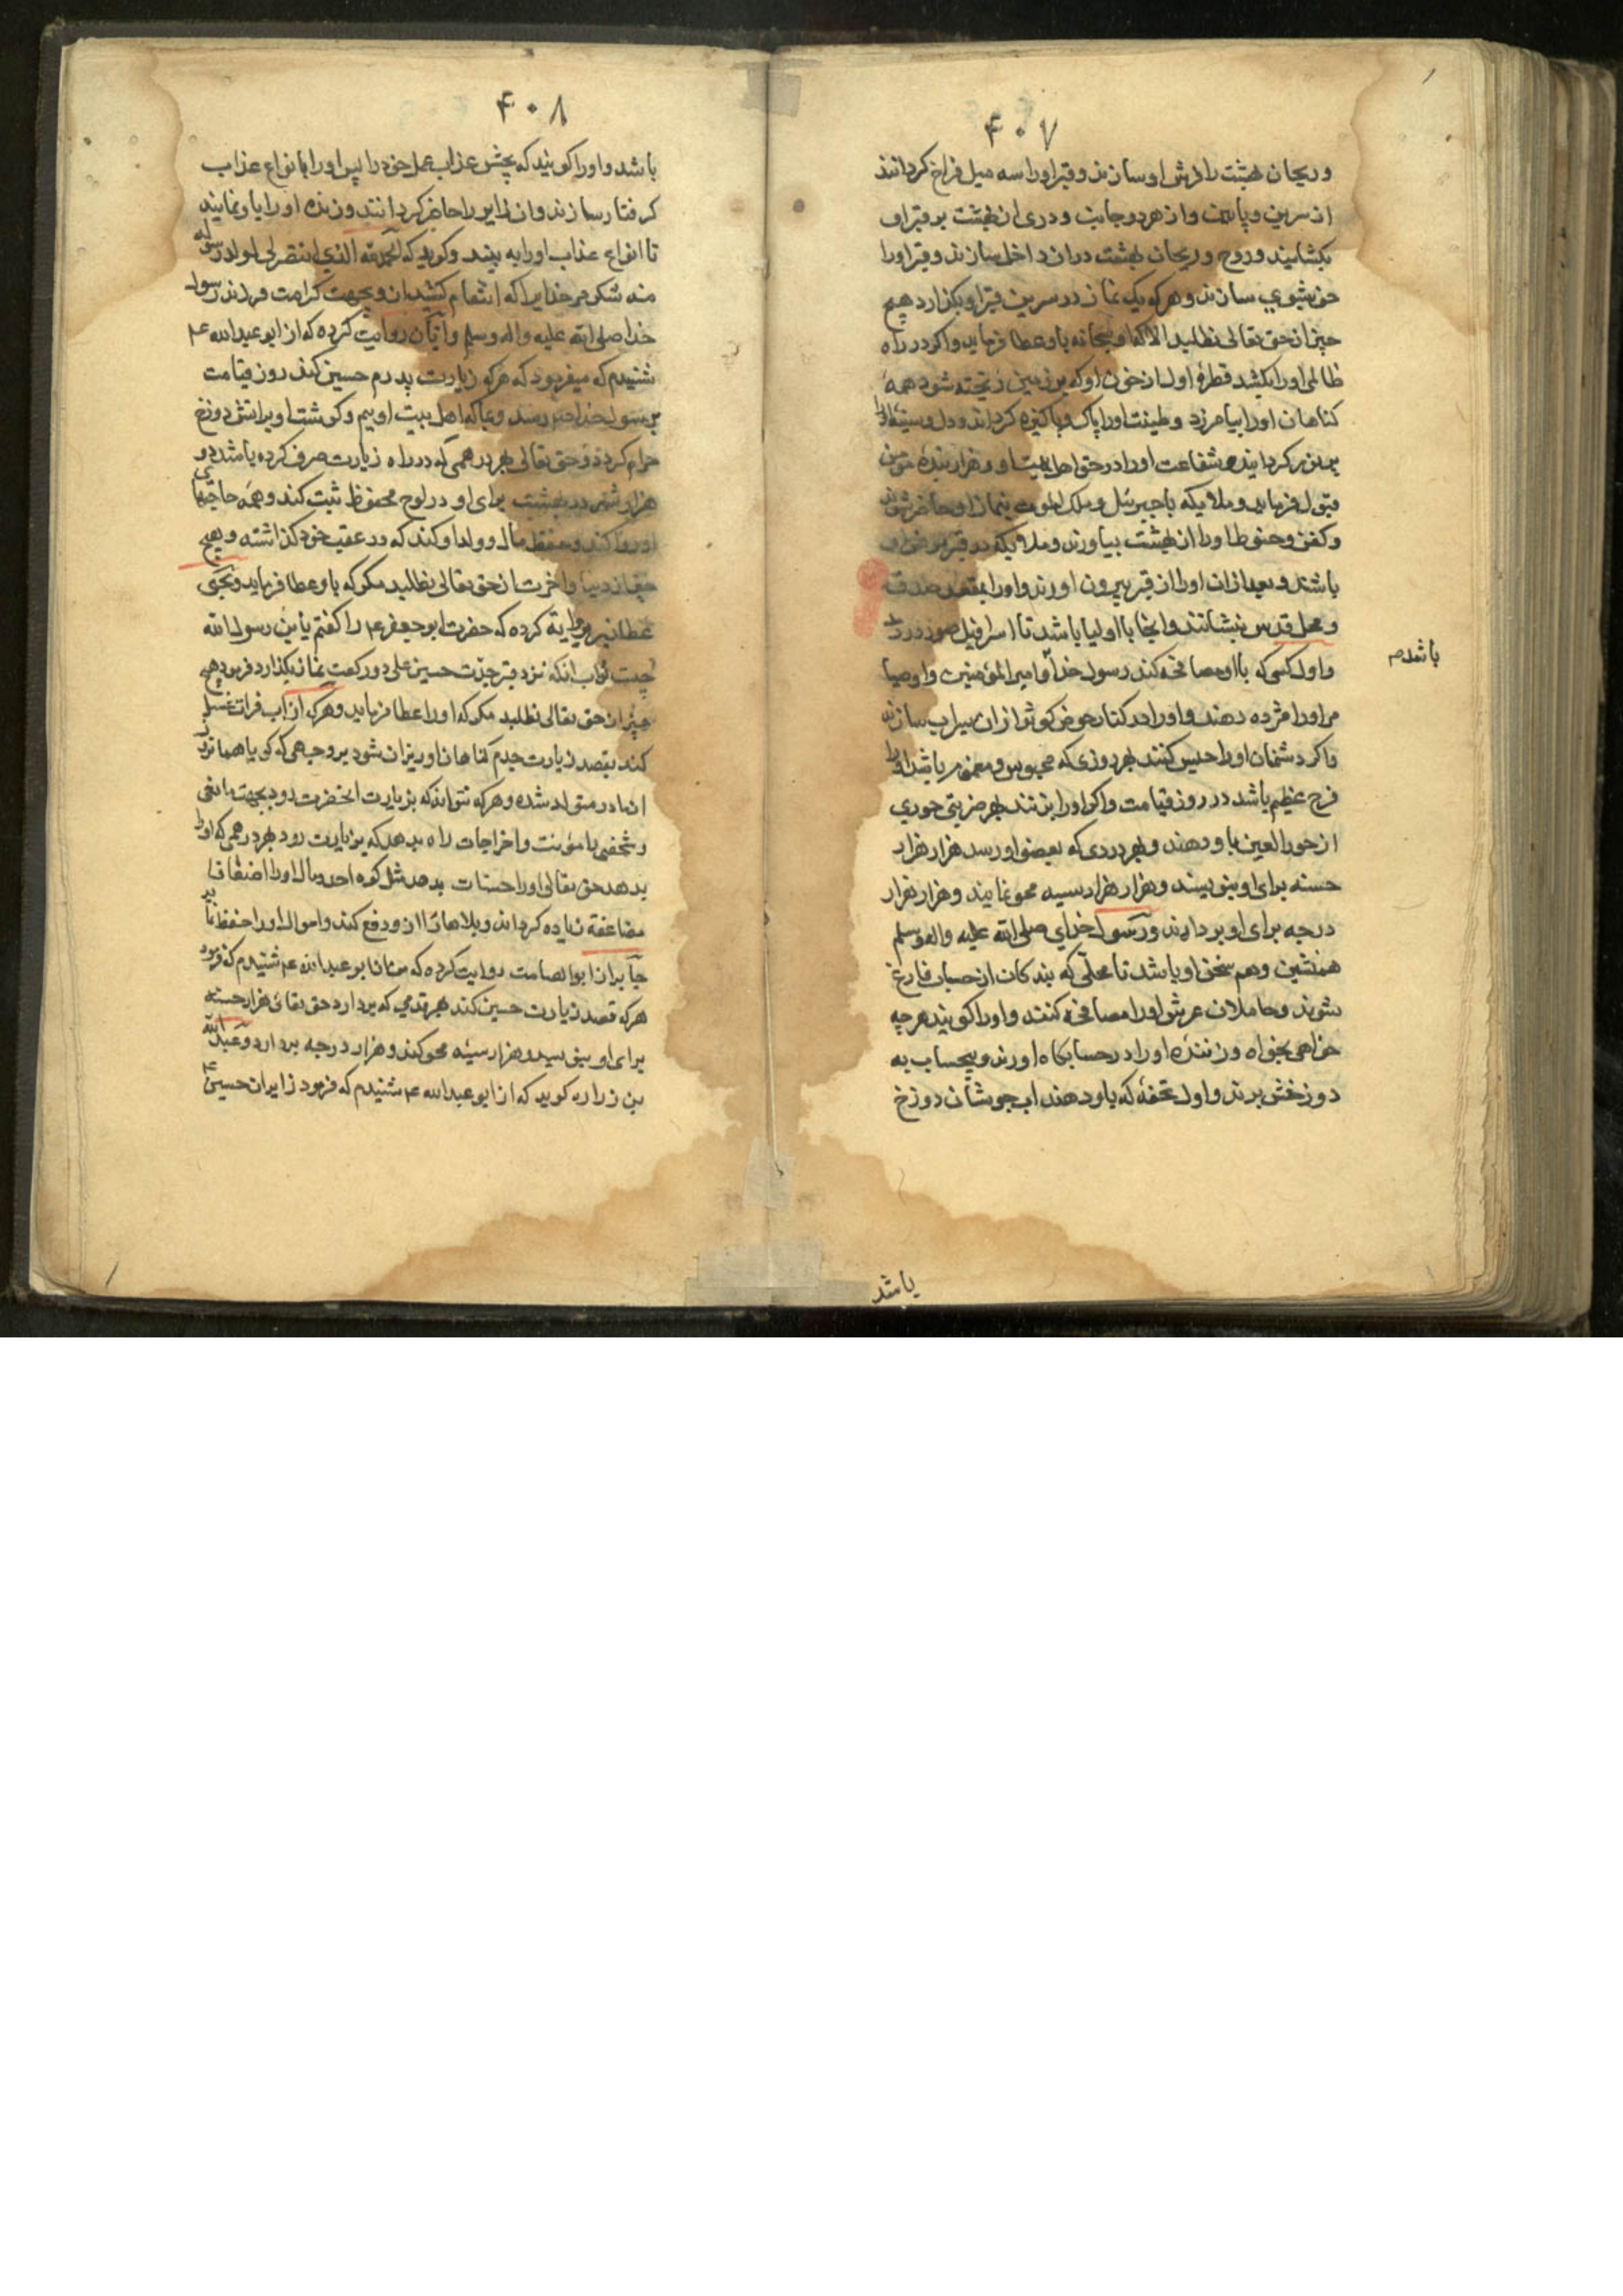 ۴۰۷
و ریحان بهشت را فرش او سازند و قبر او را سه میل فراخ کردانند
از سرین و پایین و از هر دو جانب و دری از بهشت بر قبر او
بکشایند و روح و ریحان بهشت در ان داخل سازند و قبر او را
خوشبوی سازند و هر که یک نماز در سرین قبر او بکزارد هیچ
چیز از حق تعالی نطلبد الا که او سبحانه باو عطا فرماید و اکر در راه
ظالمی او را بکشد قطرهٔ اول از خون او که بر زمین ریخته شود همهٔ
کناهان او را بیامرزد و طینت او را پاک و پاکیزه کرداند و دل و سینهٔ او را
پرنور کردانیده شفاعت او را در حق اهل بیت او و هزار بندهٔ مؤمن
قبول فرماید و ملایکه با جبرئیل و ملک الموت بنماز او حاضر شوند
و کفن و حنوط او را از بهشت بیاورند و ملایکه در قبر
باشند و بعد از ان او را از قبر بیرون اورند و او را بمقعد صدق
و محل قدس بنشانند و انجا با اولیا باشد تا اسرافیل صور دردمد
باشدم
و اول کسی که با او مصافحه کند رسول خدا و امیر المؤمنین و اوصیا
مر او را مژده دهند و او را در کنار حوض کوثر از ان سیراب سازند
و اکر دشمنان او را حبس کنند بهر روزی که محبوس و مغموم باشد او را
فرح عظیم باشد در روز قیامت و اکر او را بزنند بهر ضربتی حوری
از حور العین باو دهند و بهر دردی که بعضو او رسد هزار هزار
حسنه برای او بنویسند و هزار هزار سیه محو نمایند و هزار هزار
درجه برای او بردارند و رسول خدای صلی الله علیه واله وسلم
همنشین و هم سخن او باشد تا محلّی که بندکان از حساب فارغ
شوند و حاملان عرش او را مصافحه کنند و او را کویند هر چه
خواهی بخواه و زنندهٔ او را در حسابکاه اورند و بیحساب به
دوزخش برند و اول تحفهٔ که باو دهند اب جوشان دوزخ
باشد
۴۰۸
باشد و او را کویند که بچش عذاب عمل خود را پس او را بانواع عذاب
کرفتار سازند و ان زایر را حاضر کردانند و زنندهٔ او را باو نمایند
تا انواع عذاب او را به بیند و کوید که الحمد لله الذی انتصر لی لولد رسوله
منه شکر مر خدایرا که انتقام کشید از و بجهت کرامت فرزند رسول
خدا صلی الله علیه واله وسلم و ابان روایت کرده که از ابو عبدالله ع
شنیدم که میفرمود که هر که زیارت پدرم حسین کند روز قیامت
برسول خدا رسد و بما که اهل بیت اوییم و کوشت او بر اتش دوزخ
حرام کردد و حق تعالی بهر درهمی که در راه زیارت صرف کرده باشد ده
هزار شهر در بهشت برای او در لوح محفوظ ثبت کند و همه حاجتهای
او روا کند و حفظ مال و ولد او کند که در عقب خود کذاشته و هیچ
چیز از دنیا و اخرت از حق تعالی نطلبد مکر که باو عطا فرماید
روایة کرده که حضرت ابو جعفر ع را کفتم یابن رسول الله
چیست ثواب انکه نزد قبر جدت حسین علی دو رکعت نماز بکذارد فرمود هیچ
چیز از حق تعالی نطلبد مکر که او را عطا فرماید و هر که از اب فرات غسل
کند بقصد زیارت جدم کناهان او ریزان شود بر وجهی که کویا همان روز
از مادر متولد شده و هر که نتواند که بزیارت انحضرت رود بجهت مانعی
و شخصی را مؤنت و اخراجات راه بدهد که بزیارت رود بهر درهمی که او را
بدهد حق تعالی او را حسنات بدهد مثل کوه احد و مال او را اضعافا
مضاعفة زیاده کرداند و بلاها را از و دفع کند و اموال او را حفظ نماید
جابر از ابو الصامت روایت کرده که من از ابو عبدالله ع شنیدم که فرمود
هر که قصد زیارت حسین کند بهر قدمی که بردارد حق تعالی هزار حسنه
برای او بنویسد و هزار سیئه محو کند و هزار درجه بردارد و عبد الله
بن زراره کوید که از ابو عبدالله ع شنیدم که فرمود زایران حسین ع